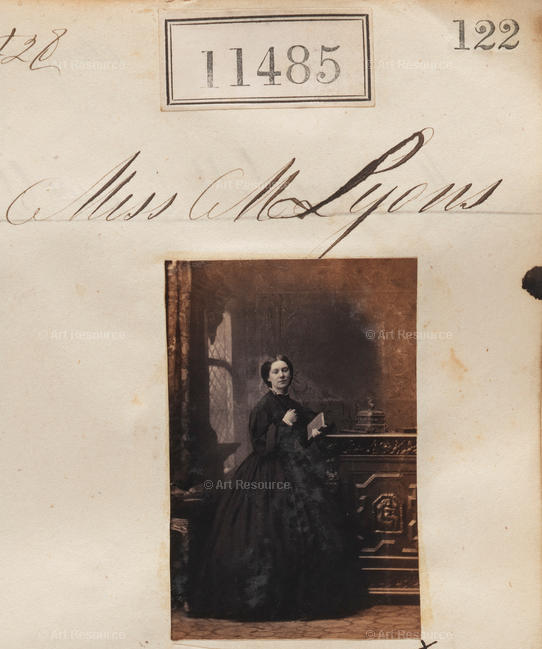 128
11485
122
© Art Resource
© Art Resource
© Art Resource
Miss M Lyons
© Art Resource
© Art Resource
© Art Resource
© Art Resource
© Art Resource
© Art Resource
© Art Resource